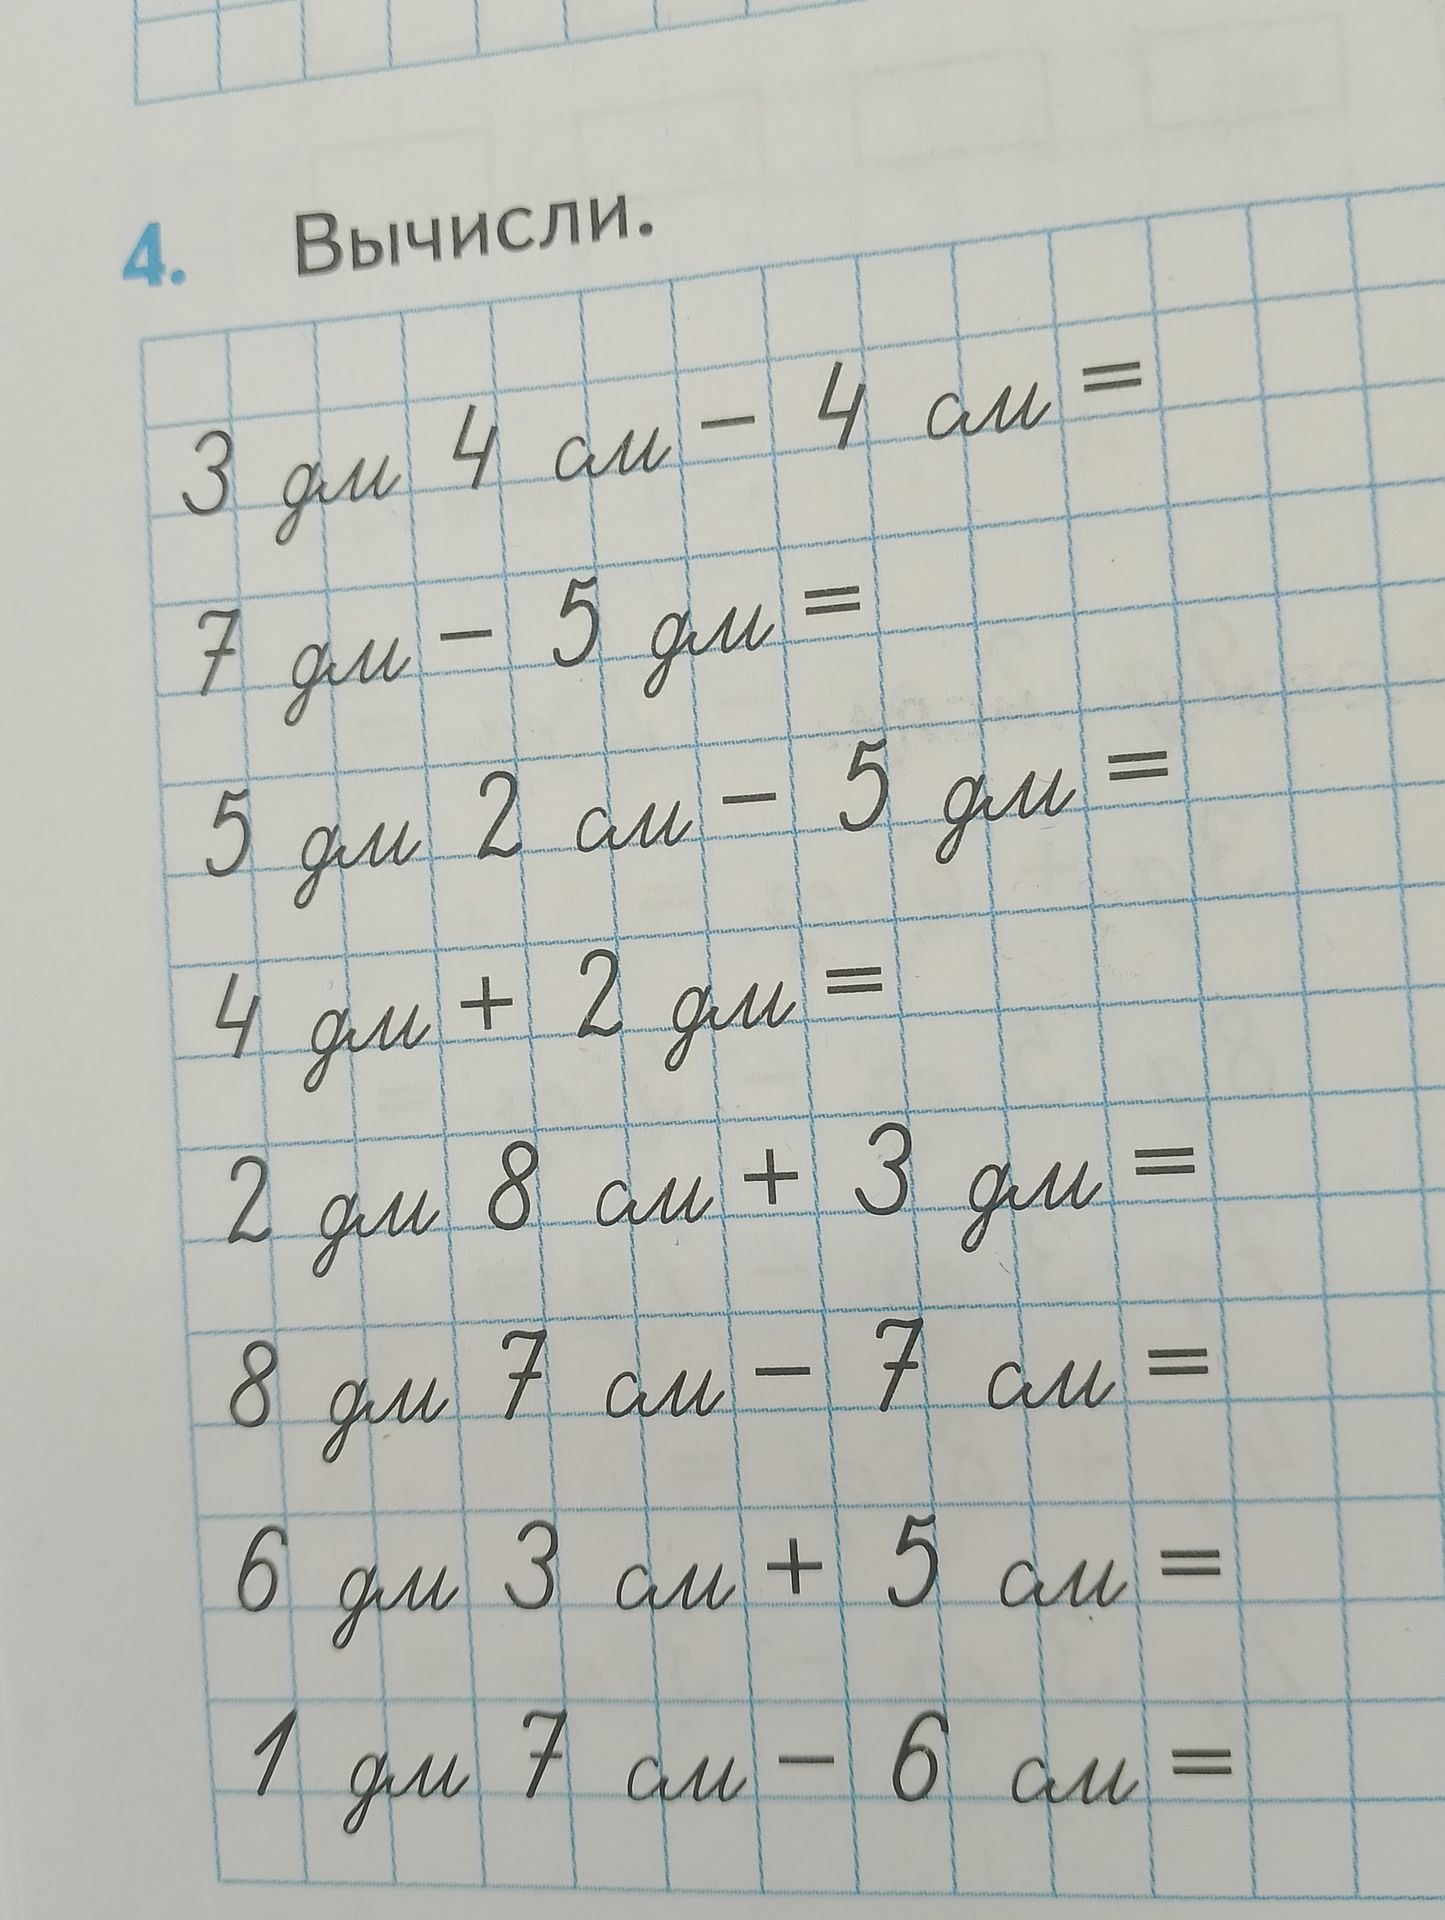 4. Вычисли.
3 дм 4 см − 4 см =
7 дм − 5 дм =
5 дм 2 см − 5 дм =
4 дм + 2 дм =
2 дм 8 см + 3 дм =
8 дм 7 см − 7 см =
6 дм 3 см + 5 см =
1 дм 7 см − 6 см =